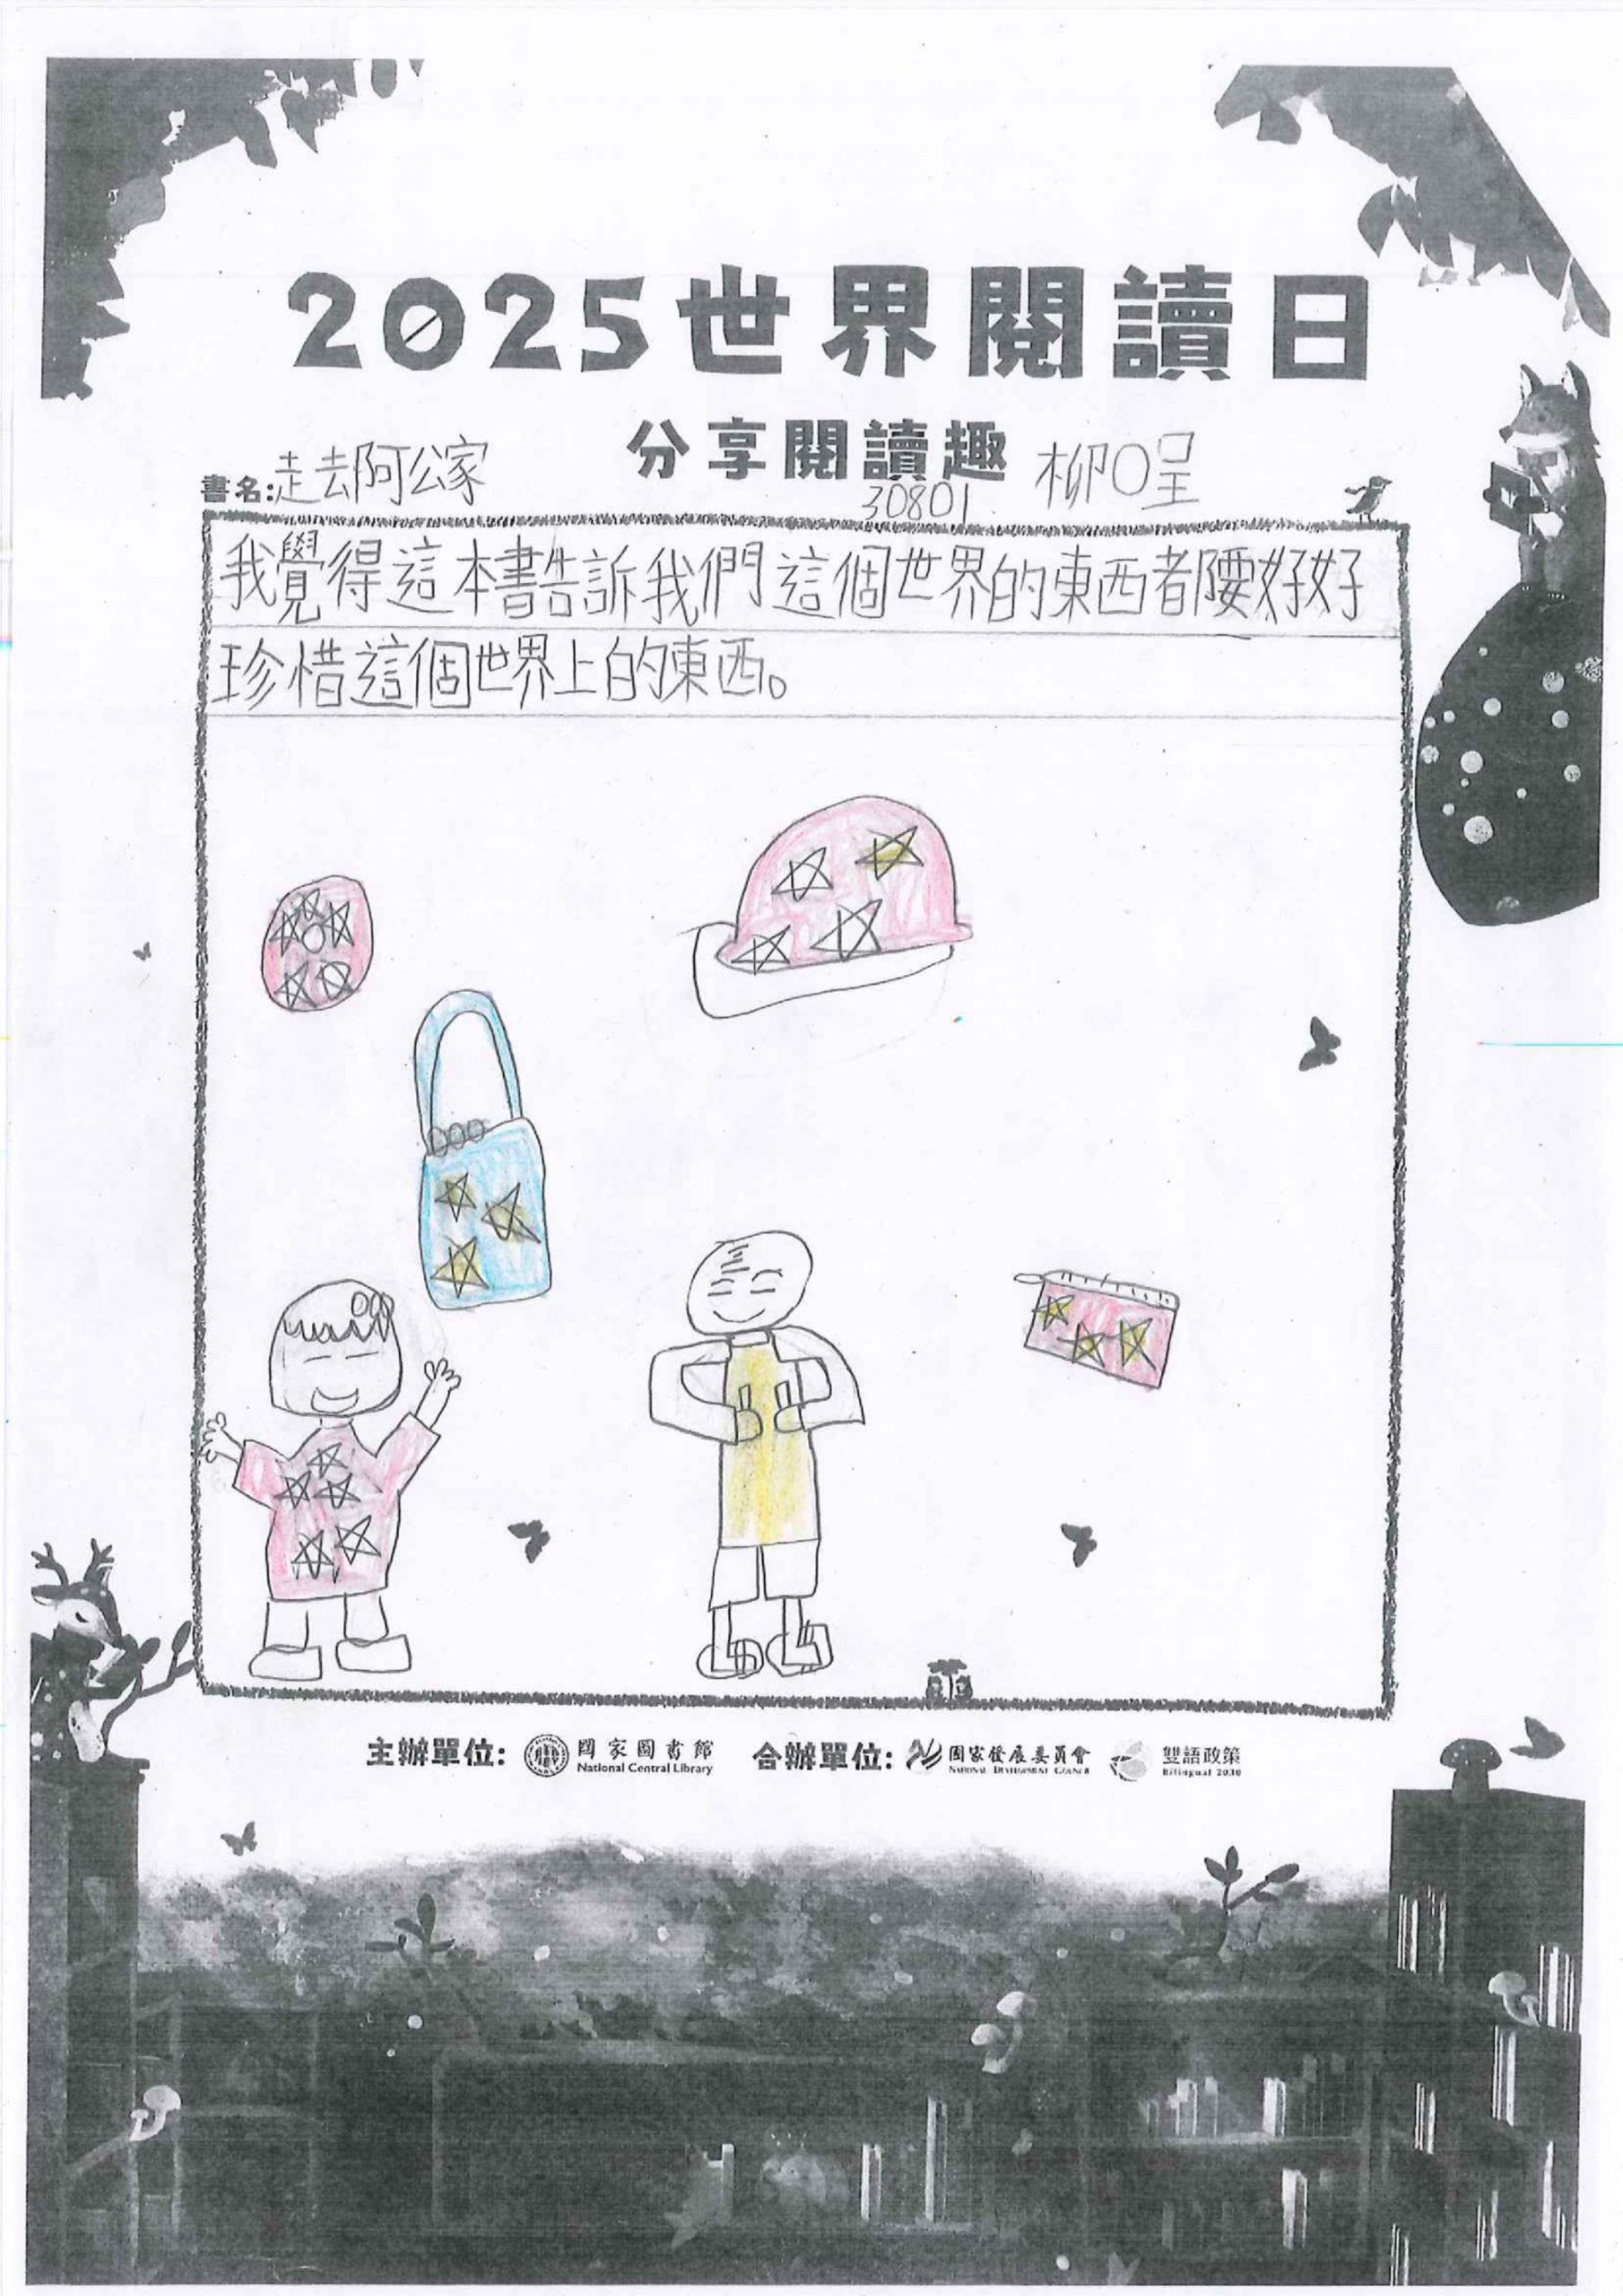 2025世界閱讀日
分享閱讀趣
書名:走去阿公家
30801 柳〇呈
我覺得這本書告訴我們這個世界的東西都要好好
珍惜這個世界上的東西。
主辦單位: 國家圖書館 合辦單位: 國家發展委員會 雙語政策
National Central Library NATIONAL DEVELOPMENT COUNCIL Bilingual 2030